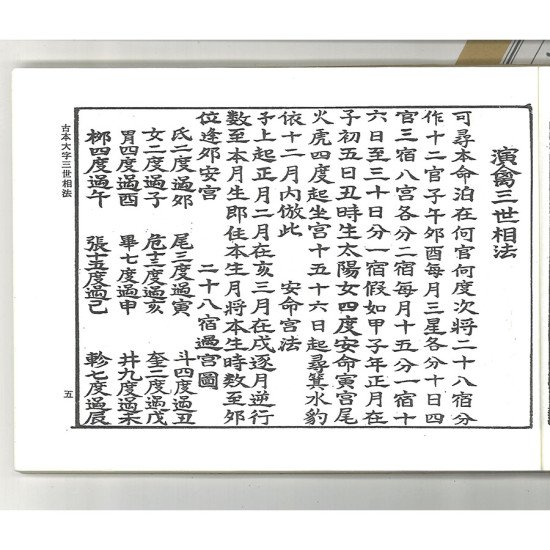 演禽三世相法
可尋本命泊在何官何度次將二十八宿分
作十二官子午郊酉每月三星各分十日四
官三宿八宮各分二宿每月十五分一宿十
六日至三十日分一宿假如甲子年正月在
子初五日丑時生太陽女四度安命寅宮尾
火虎四度起坐宮十五十六日起尋箕水豹
依十二月内倣此　安命宮法
子上起正月二月在亥三月在戌逐月逆行
數至本月生即住本生月將本生時数至郊
位逢郊安宮　二十八宿過宮圖
氐二度過郊　尾三度過寅　斗四度過丑
女二度過子　危十三度過亥　奎二度過戊
胃四度過酉　畢七度過申　井九度過未
柳四度過午　張十五度過己　軫七度過辰
古本大字三世相法
五